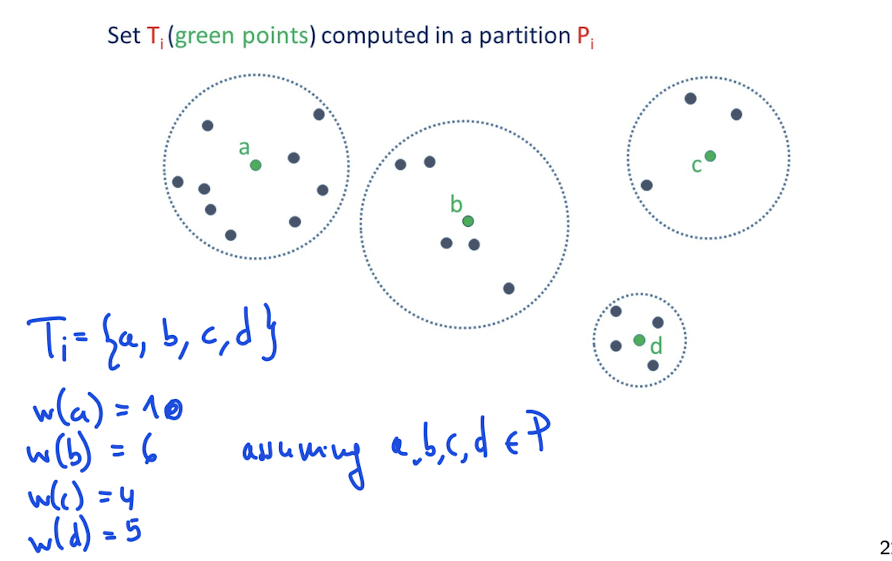 Set Ti (green points) computed in a partition Pi
a
b
c
d
Ti = {a, b, c, d}
w(a) = 10
w(b) = 6
w(c) = 4
w(d) = 5
assuming a, b, c, d ∈ P